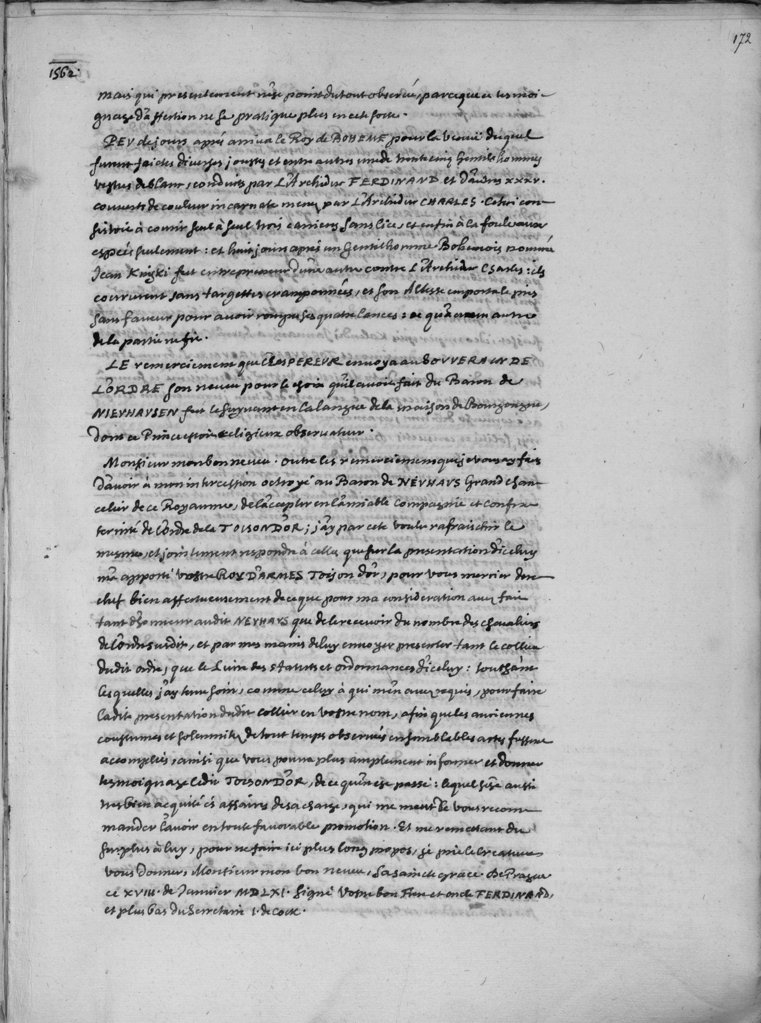 172
1562.
mais qui presentement n'est point du tout observée, parceque ce tesmoi-
gnage d'affection ne se pratique plus en ceste sorte.
PEV de jours aprés arriva le Roy de BOHEME pour la venue duquel
furent faictes diverses joustes et entre autres une de trente cinq Gentilshommes
vestus de blanc, conduits par L'Archiduc FERDINAND et d'autres XXXV.
couverts de couleur incarnate menez par L'Archiduc CHARLES. Cestui con-
sistoit à courir seul à seul trois carrieres sans lice, et enfin à la foule aux
espées seulement: et huit jours aprés un Gentilhomme Bohemois nommé
Jean Kniski fut entrepreneur d'une autre contre L'Archiduc Charles: ils
coururent sans targettes cramponnées, et son Altesse emporta le pris
sans faveur pour avoir rompu ses quatre lances: ce qu'aucun autre
de la partie ne fit.
LE remerciement que L'EMPEREUR envoya au SOUVERAIN DE
L'ORDRE son neveu pour le choix qu'il avoit fait du Baron de
NIEVHAUSEN fut le suyvant en la langue de la maison de Bourgongne,
dont ce Prince estoit religieux observateur.
Monsieur mon bon neveu. Outre les remerciemens que je vous ay faits
d'avoir à mon intercession octroyé au Baron de NEVHAVS Grand chan-
celier de ce Royaume, de l'accepter en l'amiable compagnie et confra-
ternité de l'ordre de la TOISON D'OR; j'ay par cete voulu rafraischir le
mesme, et jointement respondre à celles que sur la presentation d'iceluy
m'a apporté vostre ROY D'ARMES Toison d'or, pour vous mercier dere-
chef bien affectueusement de ce que pour ma consideration avez fait
tant d'honneur audit NEVHAVS que de le recevoir du nombre des chevaliers
de l'ordre susdit, et par mes mains de luy envoyer presenter tant le collier
dudit ordre, que le Livre des statuts et ordonnances d'iceluy: touchant
lesquelles j'ay tenu soin, comme celuy à qui m'en avez requis, pour faire
ladite presentation dudit collier en vostre nom, afin que les anciennes
coustumes et solemnitez de tout temps observées en semblables actes fussent
accomplis, ainsi que vous pourra plus amplement informer et donner
tesmoignage ledit TOISON D'OR, de ce qu'en est passé: lequel s'est aussi
tres bien acquité és affaires de sa charge, qui me meut de vous recom-
mander l'avoir en toute favorable promotion. Et me remettant du
surplus à luy, pour ne faire ici plus long propos, je prie le Createur
vous donner, Monsieur mon bon neveu, sa saincte grace. De Prague
ce XVIII. de Janvier MDLXI. Signé Vostre bon frere et oncle FERDINAND,
et plus bas du Secretaire I. de Cock.